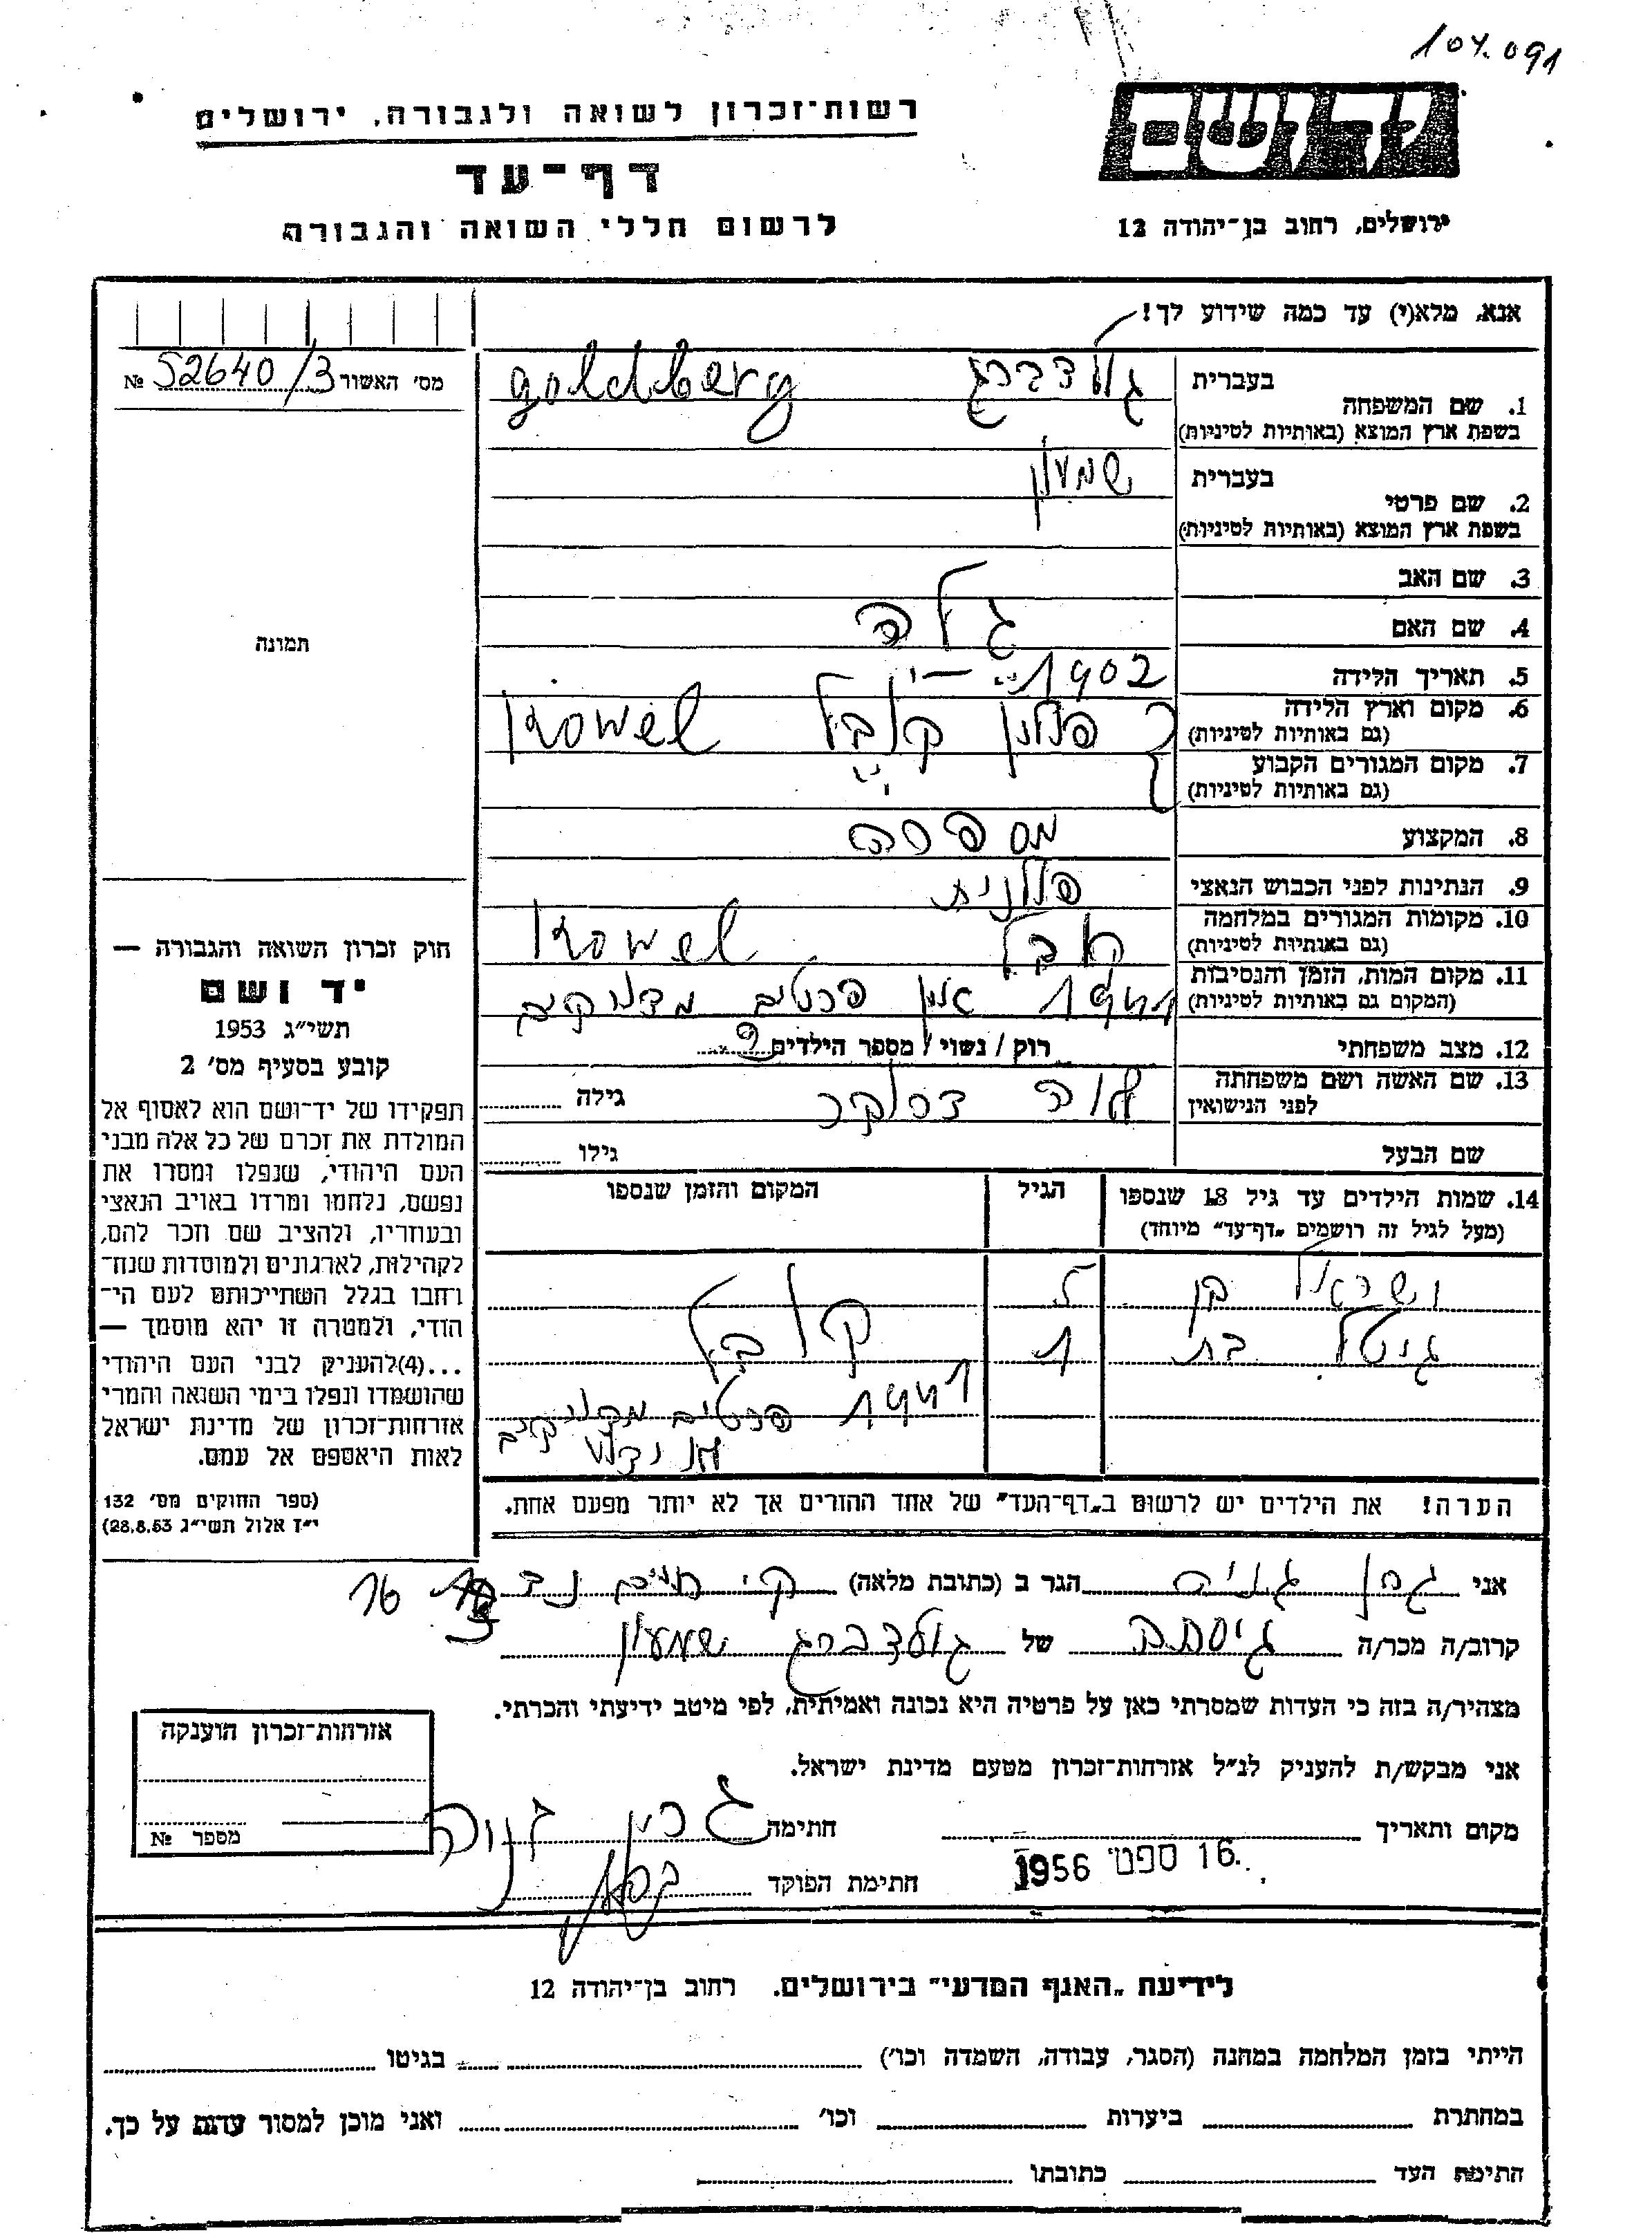 104.091
ידושם
רשות־זכרון לשואה ולגבורה, ירושלים
דף־עד
ירושלים, רחוב בן־יהודה 12
לרשום חללי השואה והגבורה
אנא, מלא(י) עד כמה שידוע לך!
מס' האשור № 52640/3
בעברית גולדברג goldberg
1. שם המשפחה
בשפת ארץ המוצא (באותיות לטיניות)
בעברית שמעון
2. שם פרטי
בשפת ארץ המוצא (באותיות לטיניות)
3. שם האב
4. שם האם
תמונה
5. תאריך הלידה 1902
6. מקום וארץ הלידה פולין קובל Kowel
(גם באותיות לטיניות)
7. מקום המגורים הקבוע
(גם באותיות לטיניות)
8. המקצוע
9. הנתינות לפני הכבוש הנאצי פולנית
10. מקומות המגורים במלחמה קובל Kowel
(גם באותיות לטיניות)
11. מקום המות, הזמן והנסיבות 1941 אין פרטים מדויקים
(המקום גם באותיות לטיניות)
12. מצב משפחתי רוק / נשוי / מספר הילדים
13. שם האשה ושם משפחתה גילה
לפני הנישואין
שם הבעל גילו
14. שמות הילדים עד גיל 18 שנספו הגיל המקום והזמן שנספו
(מעל לגיל זה רושמים „דף־עד" מיוחד)
ישראל בן קובל
גיטל בת 1
1941 פרטים מדויקים
לא ידוע
הערה! את הילדים יש לרשום ב„דף־העד" של אחד ההורים אך לא יותר מפעם אחת.
חוק זכרון השואה והגבורה —
יד ושם
תשי״ג 1953
קובע בסעיף מס' 2
תפקידו של יד־ושם הוא לאסוף אל
המולדת את זכרם של כל אלה מבני
העם היהודי, שנפלו ומסרו את
נפשם, נלחמו ומרדו באויב הנאצי
ובעוזריו, ולהציב שם וזכר להם,
לקהילות, לארגונים ולמוסדות שנח־
רחבו בגלל השתייכותם לעם הי־
הודי, ולמטרה זו יהא מוסמך —
...(4)להעניק לבני העם היהודי
שהושמדו ונפלו בימי השואה והמרי
אזרחות־זכרון של מדינת ישראל
לאות היאספם אל עמם.
(ספר החוקים מס' 132
י״ז אלול תשי״ג 28.8.53)
אני גרין הגר ב (כתובת מלאה) ק. חיים 16
קרוב/ה מכר/ה גיסתה של גולדברג שמעון
מצהיר/ה בזה כי העדות שמסרתי כאן על פרטיה היא נכונה ואמיתית, לפי מיטב ידיעתי והכרתי.
אני מבקש/ת להעניק לנ״ל אזרחות־זכרון מטעם מדינת ישראל.
מקום ותאריך חתימה
16 ספט' 1956
חתימת הפוקד
אזרחות־זכרון הוענקה
מספר №
לידיעת „האגף המדעי" בירושלים. רחוב בן־יהודה 12
הייתי בזמן המלחמה במחנה (הסגר, עבודה, השמדה וכו') בגיטו
במחתרת ביערות וכו' ואני מוכן למסור עדות על כך.
חתימת העד כתובתו